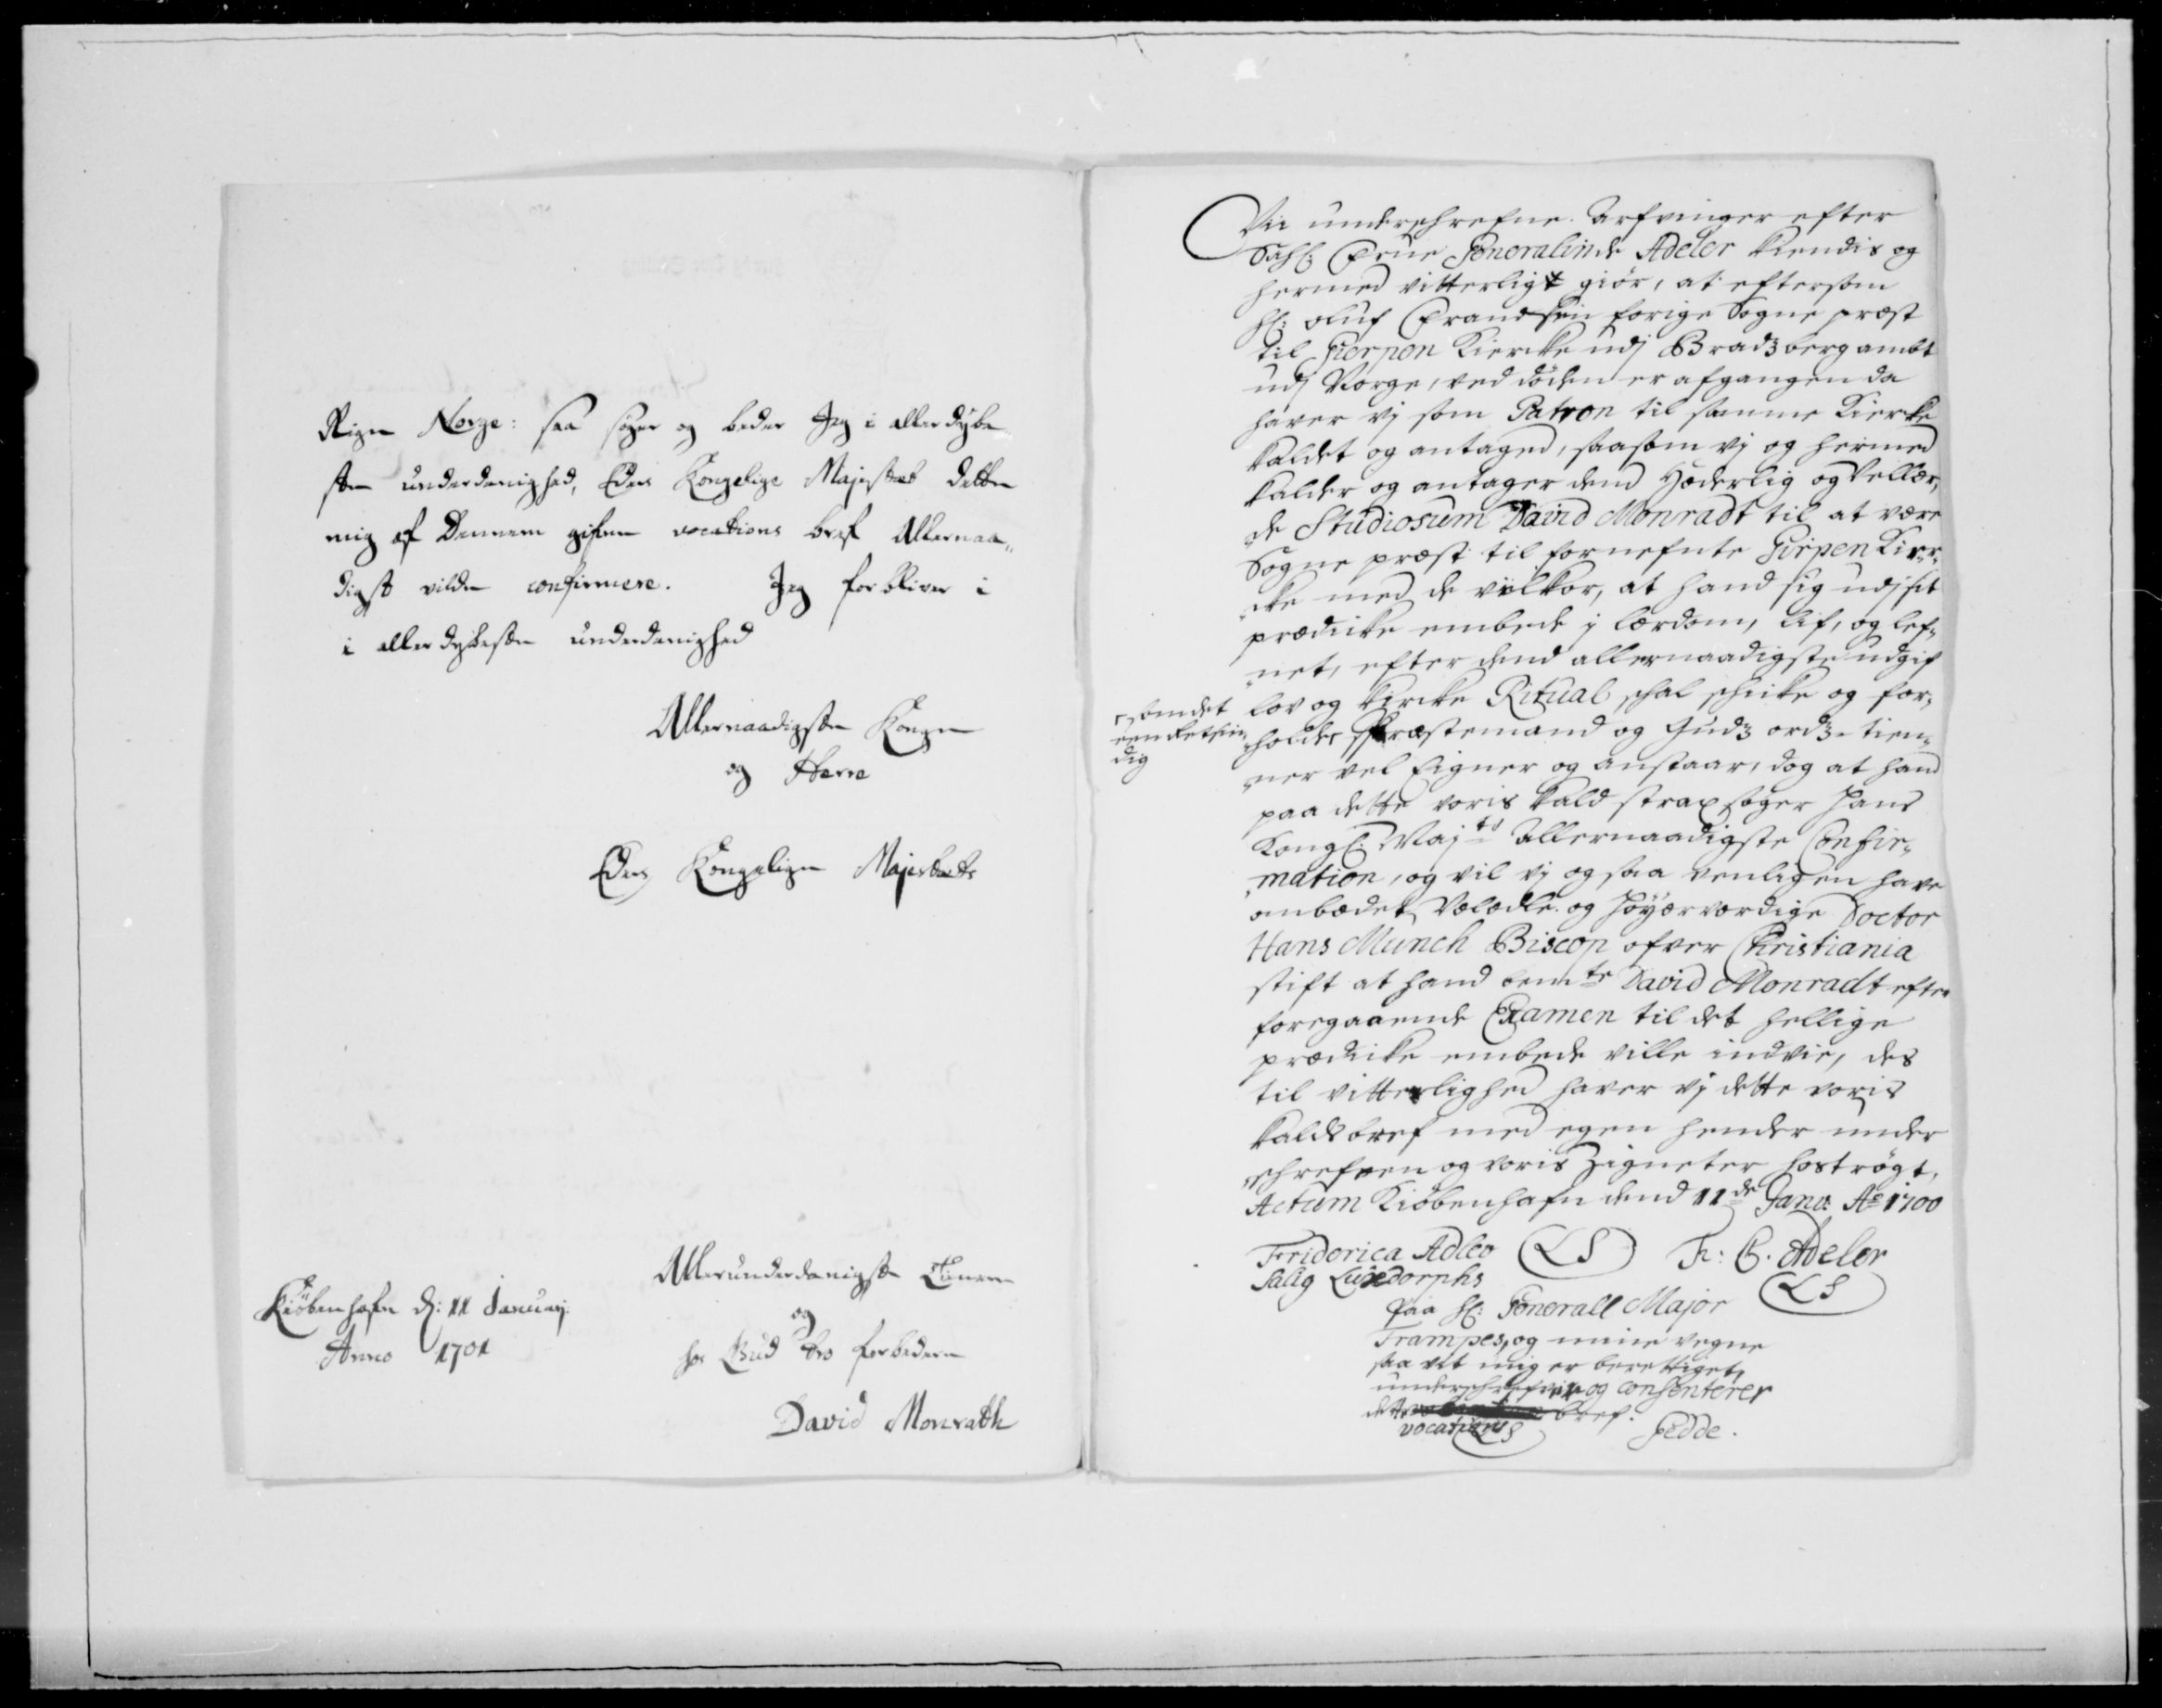 Rigen Norge: saa søger og beder Jeg i allerdybe
sten underdanighed, Eders Kongelige Majestæt dette
mig af Dennem gifven vocations bref Allernaa„
digst vilde confirmere. Jeg forbliver i
i allerdybesten underdanighed
Allernaadigste Konge
og Herre
Eders Kongelige Majestæts
Kiøbenhafn d: 11 Januarij
Anno 1701
Allerunderdanigste Tienere
og
hos Gud tro forbedere
David Monrath
Vii underschrefne Arfvinger efter
Sahl: Frue Generalinde Adeler kiendis og
hermed vitterligt giör, at eftersom
Hl: Oluf Frandsen forige Sogne præst
til Gierpen Kiercke udj Bradzberg ambt
udj Norge, ved döden er afgangen da
haver vj som Patron til samme Kiercke
kaldet og antaged, saasom vj og hermed
kalder og antager dend Hæderlig og Vellær„
de Studiosum David Monradt til at være
Sogne præst til fornefnte Girpen Kier„
cke med de vilkor, at hand sig udj sit
prædicke embede j lærdom, lif, og lef„
net, efter dend allernaadigste udgif
lov og Kircke Ritual schal schicke og for„
somdet
eendretsin
dig
holde Præstemand og Gudz ordz tien„
ner vel eigner og anstaar, dog at hand
paa dette voris kald strax søger Hans
Kongl: Majts Allernaadigste Confir„
mation, og vil vj ogsaa venligen have
ombædet Vælædle og Höyærværdige Doctor
Hans Munch Biscop ofver Christiania
stift at hand bemte David Monradt efter
foregaaende Examen til det hellige
prædicke embede ville indvie, des
til vitterlighed haver vj dette voris
kaldsbref med egen hender under
schrefven og voris Zigneter hoströgt,
Actum Kiöbenhafn dend 11de Janv: Ao 1700
Friderica Adler LS F: C. Adeler
Salig Luxdorphs LS
Paa Hl: Generall Major
Trampes, og mine vegne
saa vit mig er berettiget,
underschrifver og consenterer
dette bref.
vocations
LS Gedde.